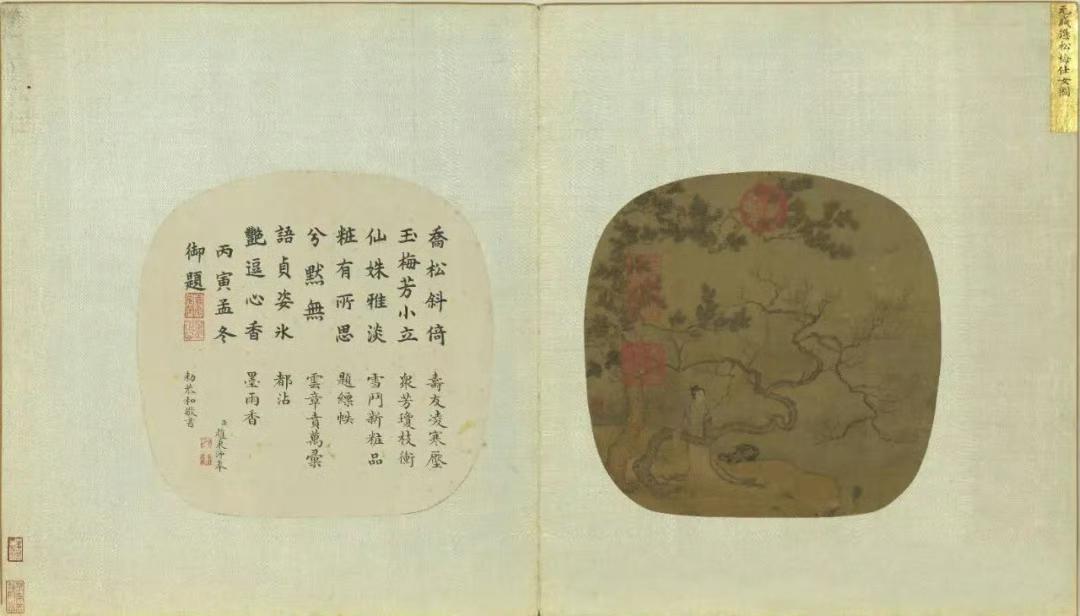 元錢選松梅仕女圖
喬松斜倚
玉梅芳小立
仙姝雅淡
粧有所思
兮默無
語貞姿氷
艷逗心香
丙寅孟冬
御題
壽友凌寒壓
衆芳瓊枝衡
雪鬥新粧品
題縹帙
雲章賁萬彙
都沾
墨雨香
臣 奉
勅恭和敬書